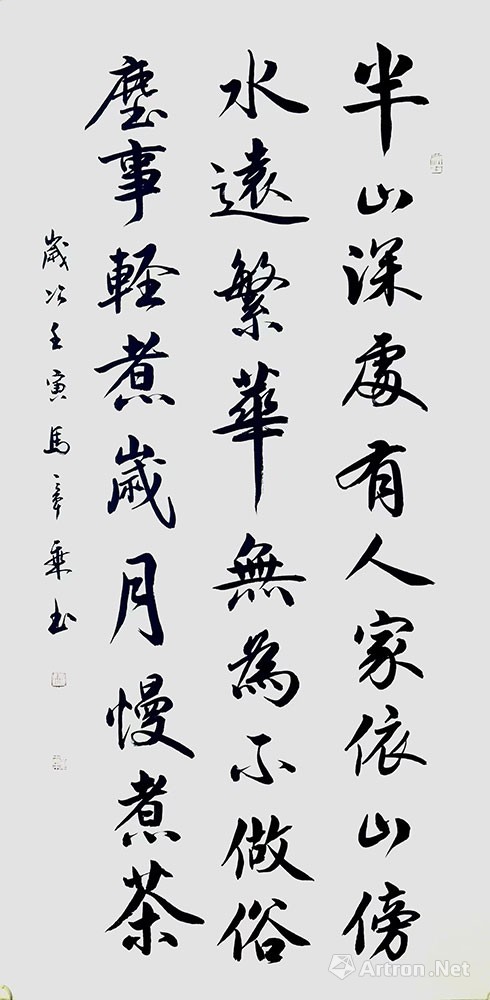 半山深處有人家依山傍
水遠繁華無為不做俗
塵事輕煮歲月慢煮茶
歲次壬寅馬章乘書
Artron.Net